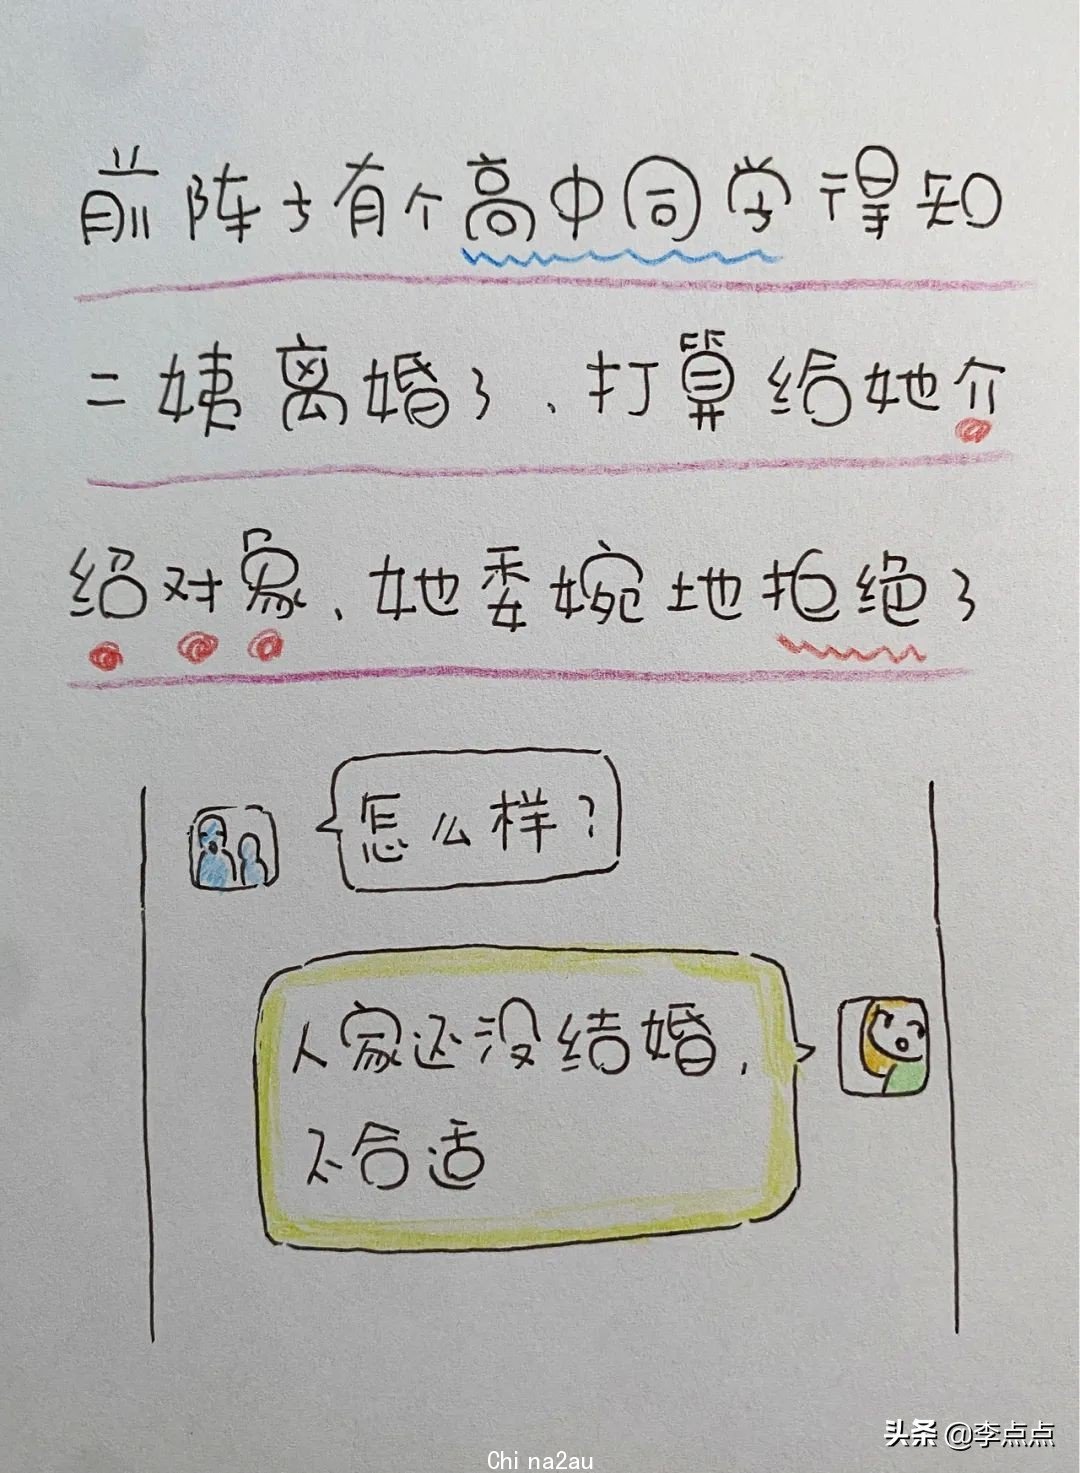 前阵子有个高中同学得知
二姨离婚了、打算给她介
绍对象、她委婉地拒绝了
怎么样?
人家还没结婚,
不合适
头条 @李点点
China2au